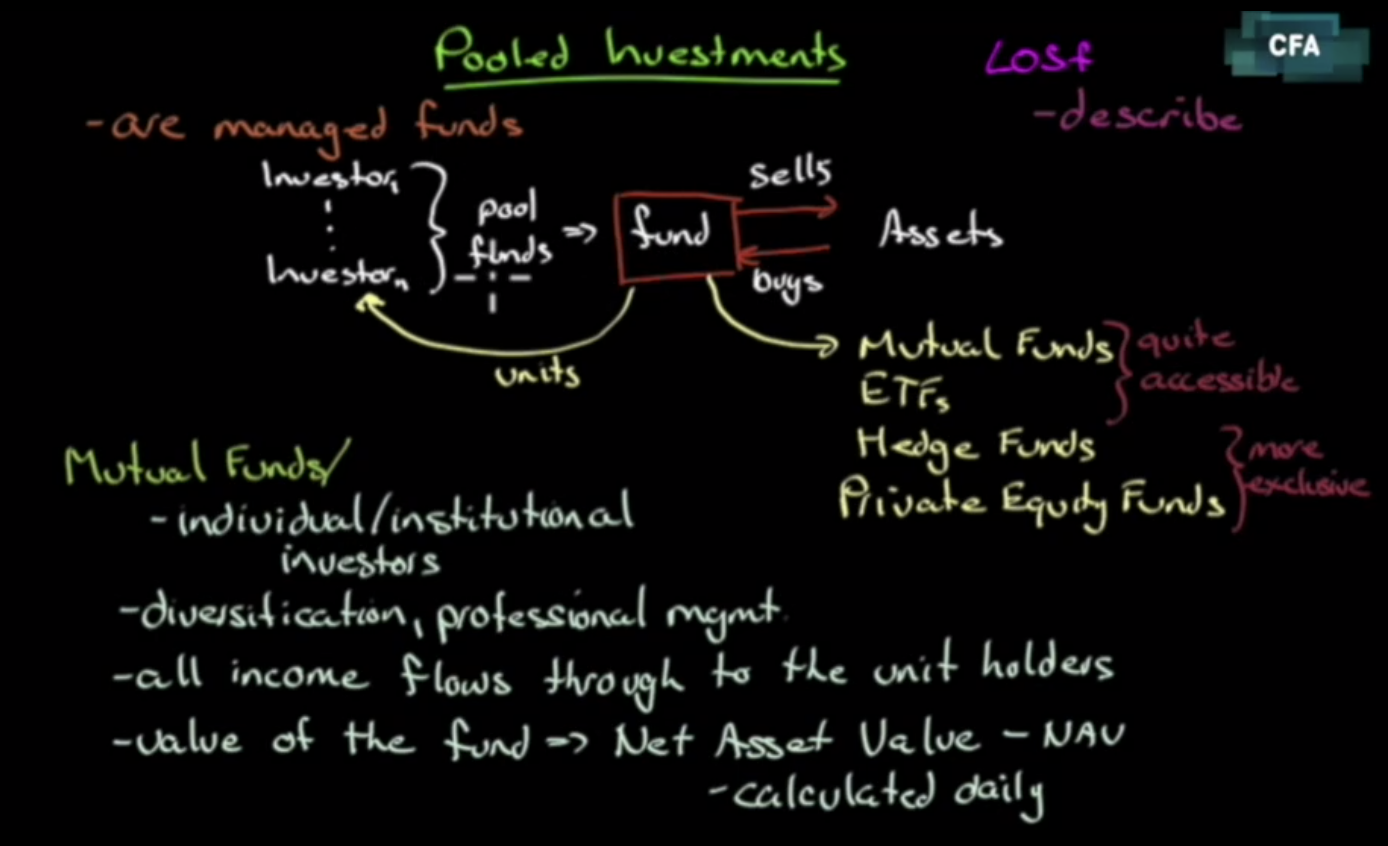 Pooled Investments
LOSf
CFA
-describe
-are managed funds
Investor₁
Investorₙ
pool
funds
=> fund
sells
buys
Assets
units
Mutual Funds
ETFs
quite
accessible
Hedge Funds
Private Equity Funds
more
exclusive
Mutual Funds/
-individual/institutional
investors
-diversification, professional mgmt.
-all income flows through to the unit holders
-value of the fund => Net Asset Value - NAV
-calculated daily